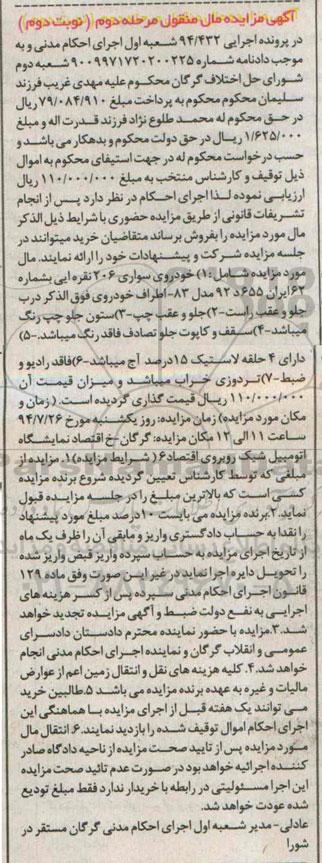 آگهی مزایده مال منقول مرحله دوم ((نوبت دوم))
در پرونده اجرایی ۹۴/۴۳۲ شعبه اول اجرای احکام مدنی و به
موجب دادنامه شماره ۹۰۰۹۹۷۱۷۲۰۲۰۰۲۲۵ شعبه دوم
شورای حل اختلاف گرگان محکوم علیه مهدی غریب فرزند
سلیمان محکوم محکوم به پرداخت مبلغ ۷۹/۰۸۴/۹۱۰ ریال
در حق محکوم له محمد طلوع نژاد فرزند قدرت اله و مبلغ
۱/۶۲۵/۰۰۰ ریال در حق دولت محکوم و بدهکار می باشد و
حسب درخواست محکوم له در جهت استیفای محکوم به اموال
ذیل توقیف و کارشناس منتخب به مبلغ ۱۱۰/۰۰۰/۰۰۰ ریال
ارزیابی نموده لذا اجرای احکام در نظر دارد پس از انجام
تشریفات قانونی از طریق مزایده حضوری با شرایط ذیل الذکر
مال مورد مزایده را بفروش برساند متقاضیان خرید میتوانند در
جلسه مزایده شرکت و پیشنهادات خود را ارائه نمایند. مال
مورد مزایده شامل:۱) خودروی سواری ۲۰۶ نقره ایی بشماره
۶۲ ایران ۶۵۵ د ۹۲ مدل ۸۳-اطراف خودروی فوق الذکر درب
جلو و عقب راست-۲)جلو و عقب چپ-۳)ستون جلو چپ رنگ
میباشد-۴)سقف و کاپوت جلو تصادف فاقد رنگ میباشد.-۵)
دارای ۴ حلقه لاستیک ۱۵درصد آج میباشد-۶)فاقد رادیو و
ضبط-۷)تردوزی خراب میباشد و میزان قیمت آن
۱۱۰/۰۰۰/۰۰۰ ریال قیمت گذاری گردیده است. (زمان و
مکان مورد مزایده) زمان مزایده: روز یکشنبه مورخ ۹۴/۷/۲۶
ساعت ۱۱ الی ۱۲ مکان مزایده: گرگان-خ اقتصاد نمایشگاه
اتومبیل شیک روبروی اقتصاد۶( شرایط مزایده)۱. مزایده از
مبلغی که توسط کارشناس تعیین گردیده شروع برنده مزایده
کسی است که بالاترین مبلغ را در جلسه مزایده قبول
نماید.۲.برنده مزایده می بایست ۱۰درصد مبلغ مورد پیشنهاد
را نقدا به حساب دادگستری واریز و مابقی آن را ظرف یک ماه
از تاریخ اجرای مزایده به حساب سپرده واریز قبض واریز شده
را تحویل دایره اجرا نماید در غیر این صورت وفق ماده ۱۲۹
قانون اجرای احکام مدنی سپرده پس از کسر هزینه های
اجرایی به نفع دولت ضبط و آگهی مزایده تجدید خواهد
شد.۳.مزایده با حضور نماینده محترم دادستان دادسرای
عمومی و انقلاب گرگان و نماینده اجرای احکام مدنی انجام
خواهد شد.۴. کلیه هزینه های نقل و انتقال زمین اعم از عوارض
مالیات و غیره به عهده برنده مزایده می باشد ۵.طالبین خرید
می توانند یک هفته قبل از اجرای مزایده با هماهنگی این
اجرای احکام اموال توقیف شده را بازدید نمایند.۶. انتقال مال
مورد مزایده پس از تایید صحت مزایده از ناحیه دادگاه صادر
کننده اجرائیه خواهد بود در صورت عدم تائید صحت مزایده
این اجرا مسئولیتی در رابطه با خریدار ندارد فقط مبلغ تودیع
شده عودت خواهد شد.
عادلی-مدیر شعبه اول اجرای احکام مدنی گرگان مستقر در
شورا